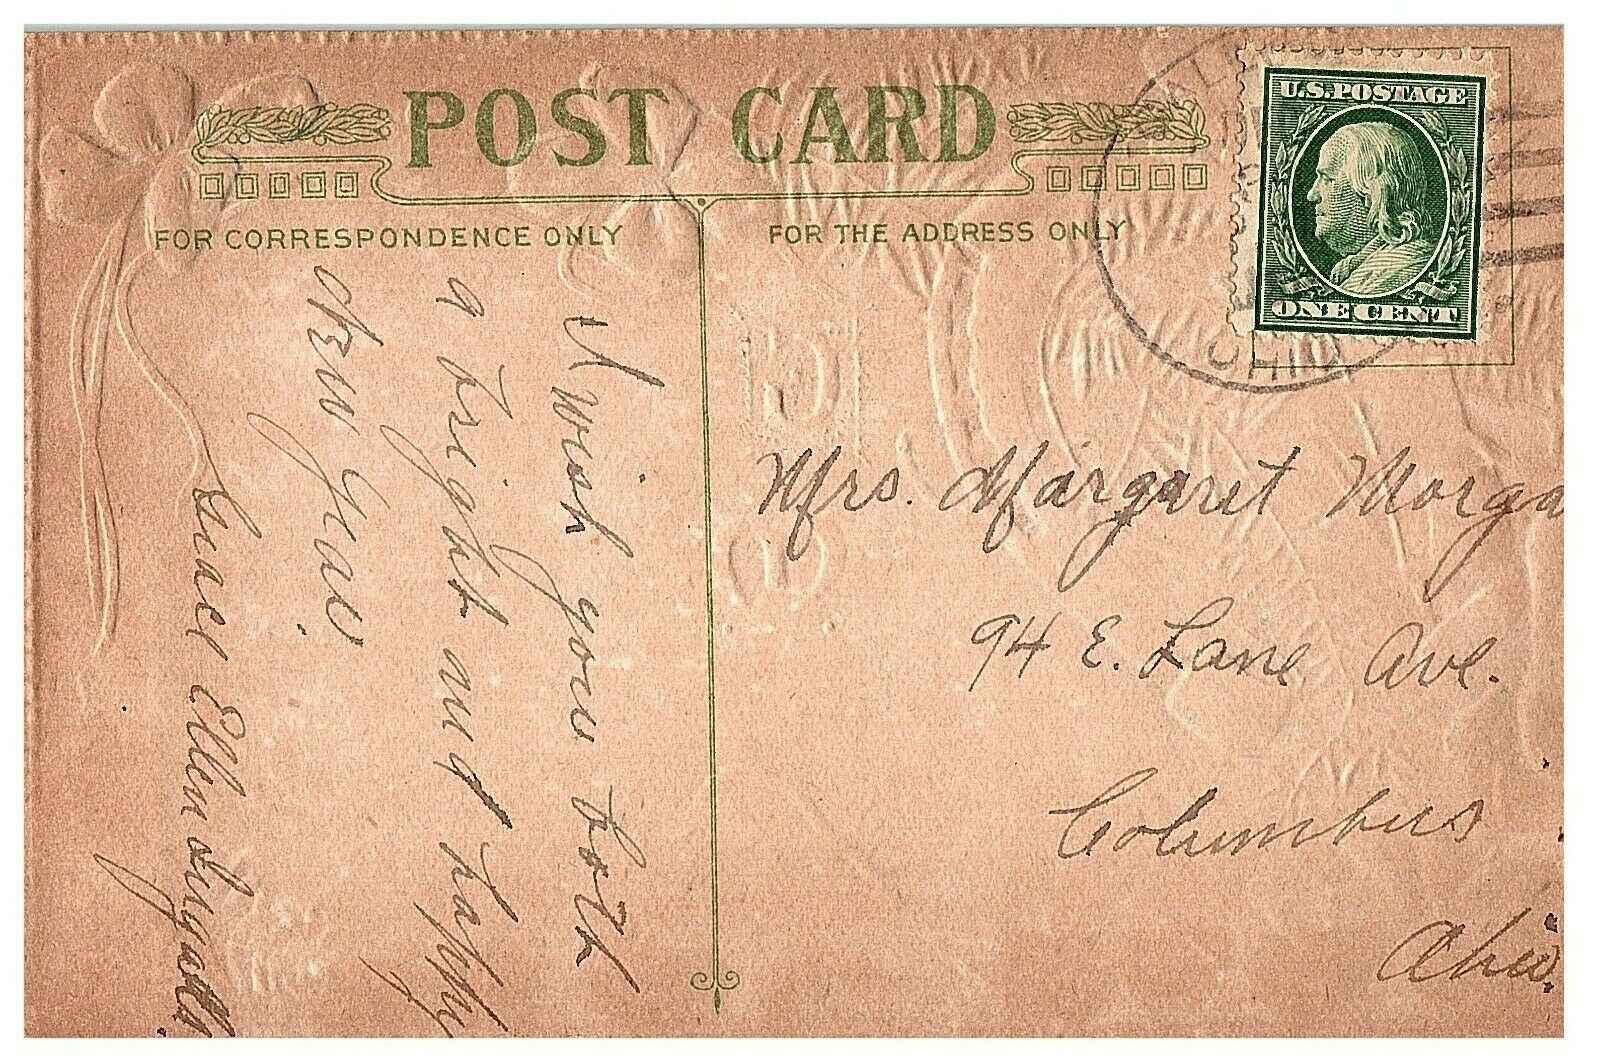 POST CARD
FOR CORRESPONDENCE ONLY
FOR THE ADDRESS ONLY
U.S. POSTAGE
ONE CENT
OHIO
I wish you both
a bright and happy
New Year.
Ellen
Mrs. Margaret Morga
94 E. Lane Ave.
Columbus
Ohio.